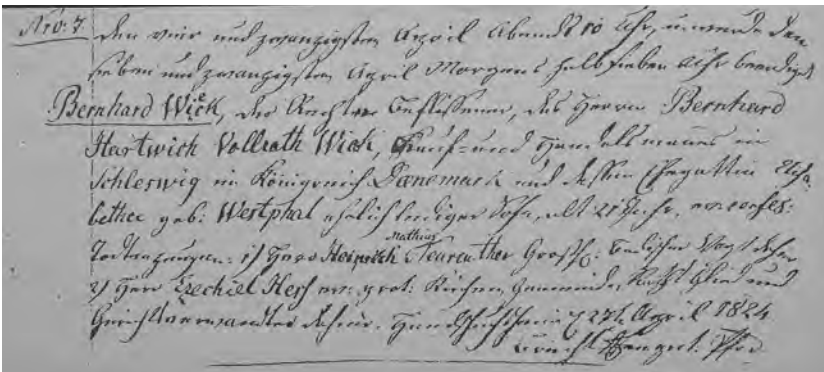 Nro: 7. den vier und zwanzigsten April Abends 10 Uhr, u. wurde den
sieben und zwanzigsten April Morgens halb sieben Uhr beerdigt
Bernhard Wiek, der Rechten Beflissener, des Herrn Bernhard
Hartwich Vollrath Wiek, Kauf- und Handelsmanns in
Schleswig im Königreich Dænemark und dessen Ehegattin Elisa-
betha geb: Westphal ehelich lediger Sohn, alt 21 Jahr,
Todtenzeugen: 1) Herr Heinrich Mathias Grosh: Badischer Vogt daher
2) Herr Ezechiel prot: Kirchen Gemeinde, Raths Glied und
Gerichtsverwandter daher. 27t April 1824